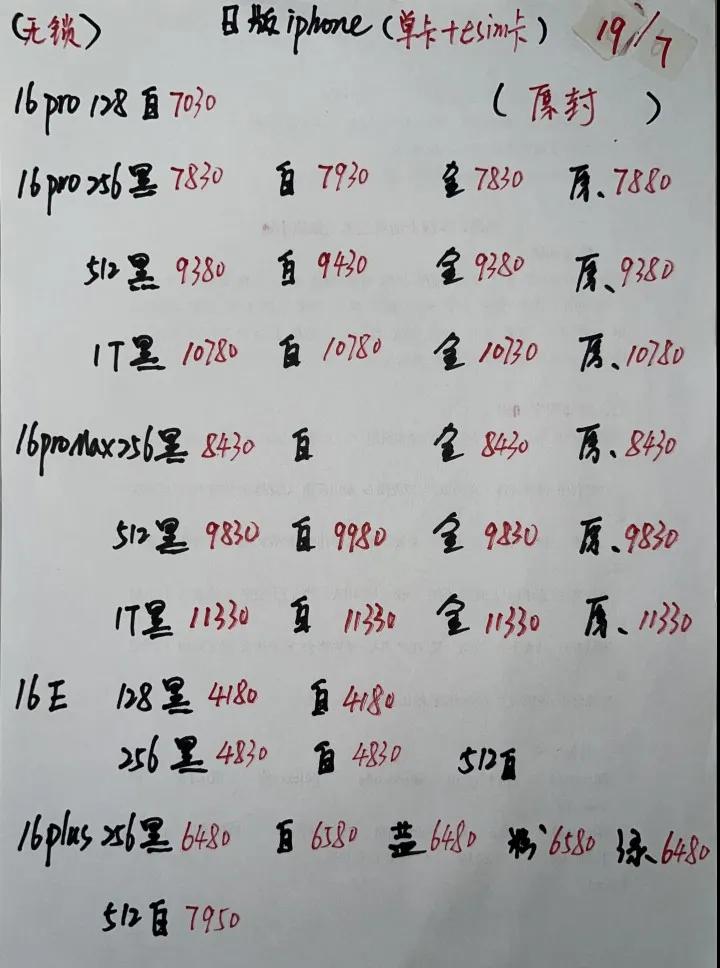 (无锁) 日版iphone(单卡+esim卡) 19/7
16pro 128 白 7030 (原封)
16pro 256 黑 7830 白 7930 金 7830 原、7880
512 黑 9380 白 9430 金 9380 原、9380
1T 黑 10780 白 10780 金 10730 原、10780
16proMax 256 黑 8430 白 金 8430 原、8430
512 黑 9830 白 9980 金 9830 原、9830
1T 黑 11330 白 11330 金 11330 原、11330
16E 128 黑 4180 白 4180
256 黑 4830 白 4830 512白
16plus 256 黑 6480 白 6580 蓝 6480 粉 6580 绿 6480
512 白 7950